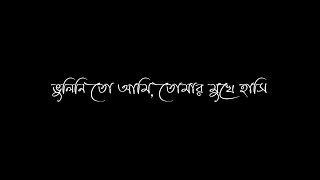 ভুলিনি তো আমি, তোমার মুখে হাসি